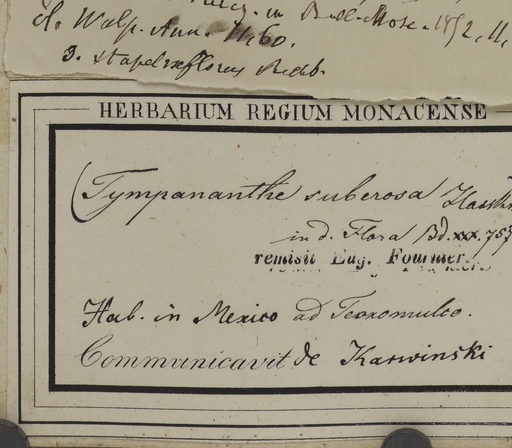 in Bull. Mosc. 1852, II,
cl. Walp. Ann. 60.
3. stapeliaeflorus Reichb.
HERBARIUM REGIUM MONACENSE
(Tympananthe suberosa Hassk
in d. Flora Bd. xxx. 757
remisit Eug. Fournier.
Hab. in Mexico ad Teoxomulco.
Communicavit de Karwinski